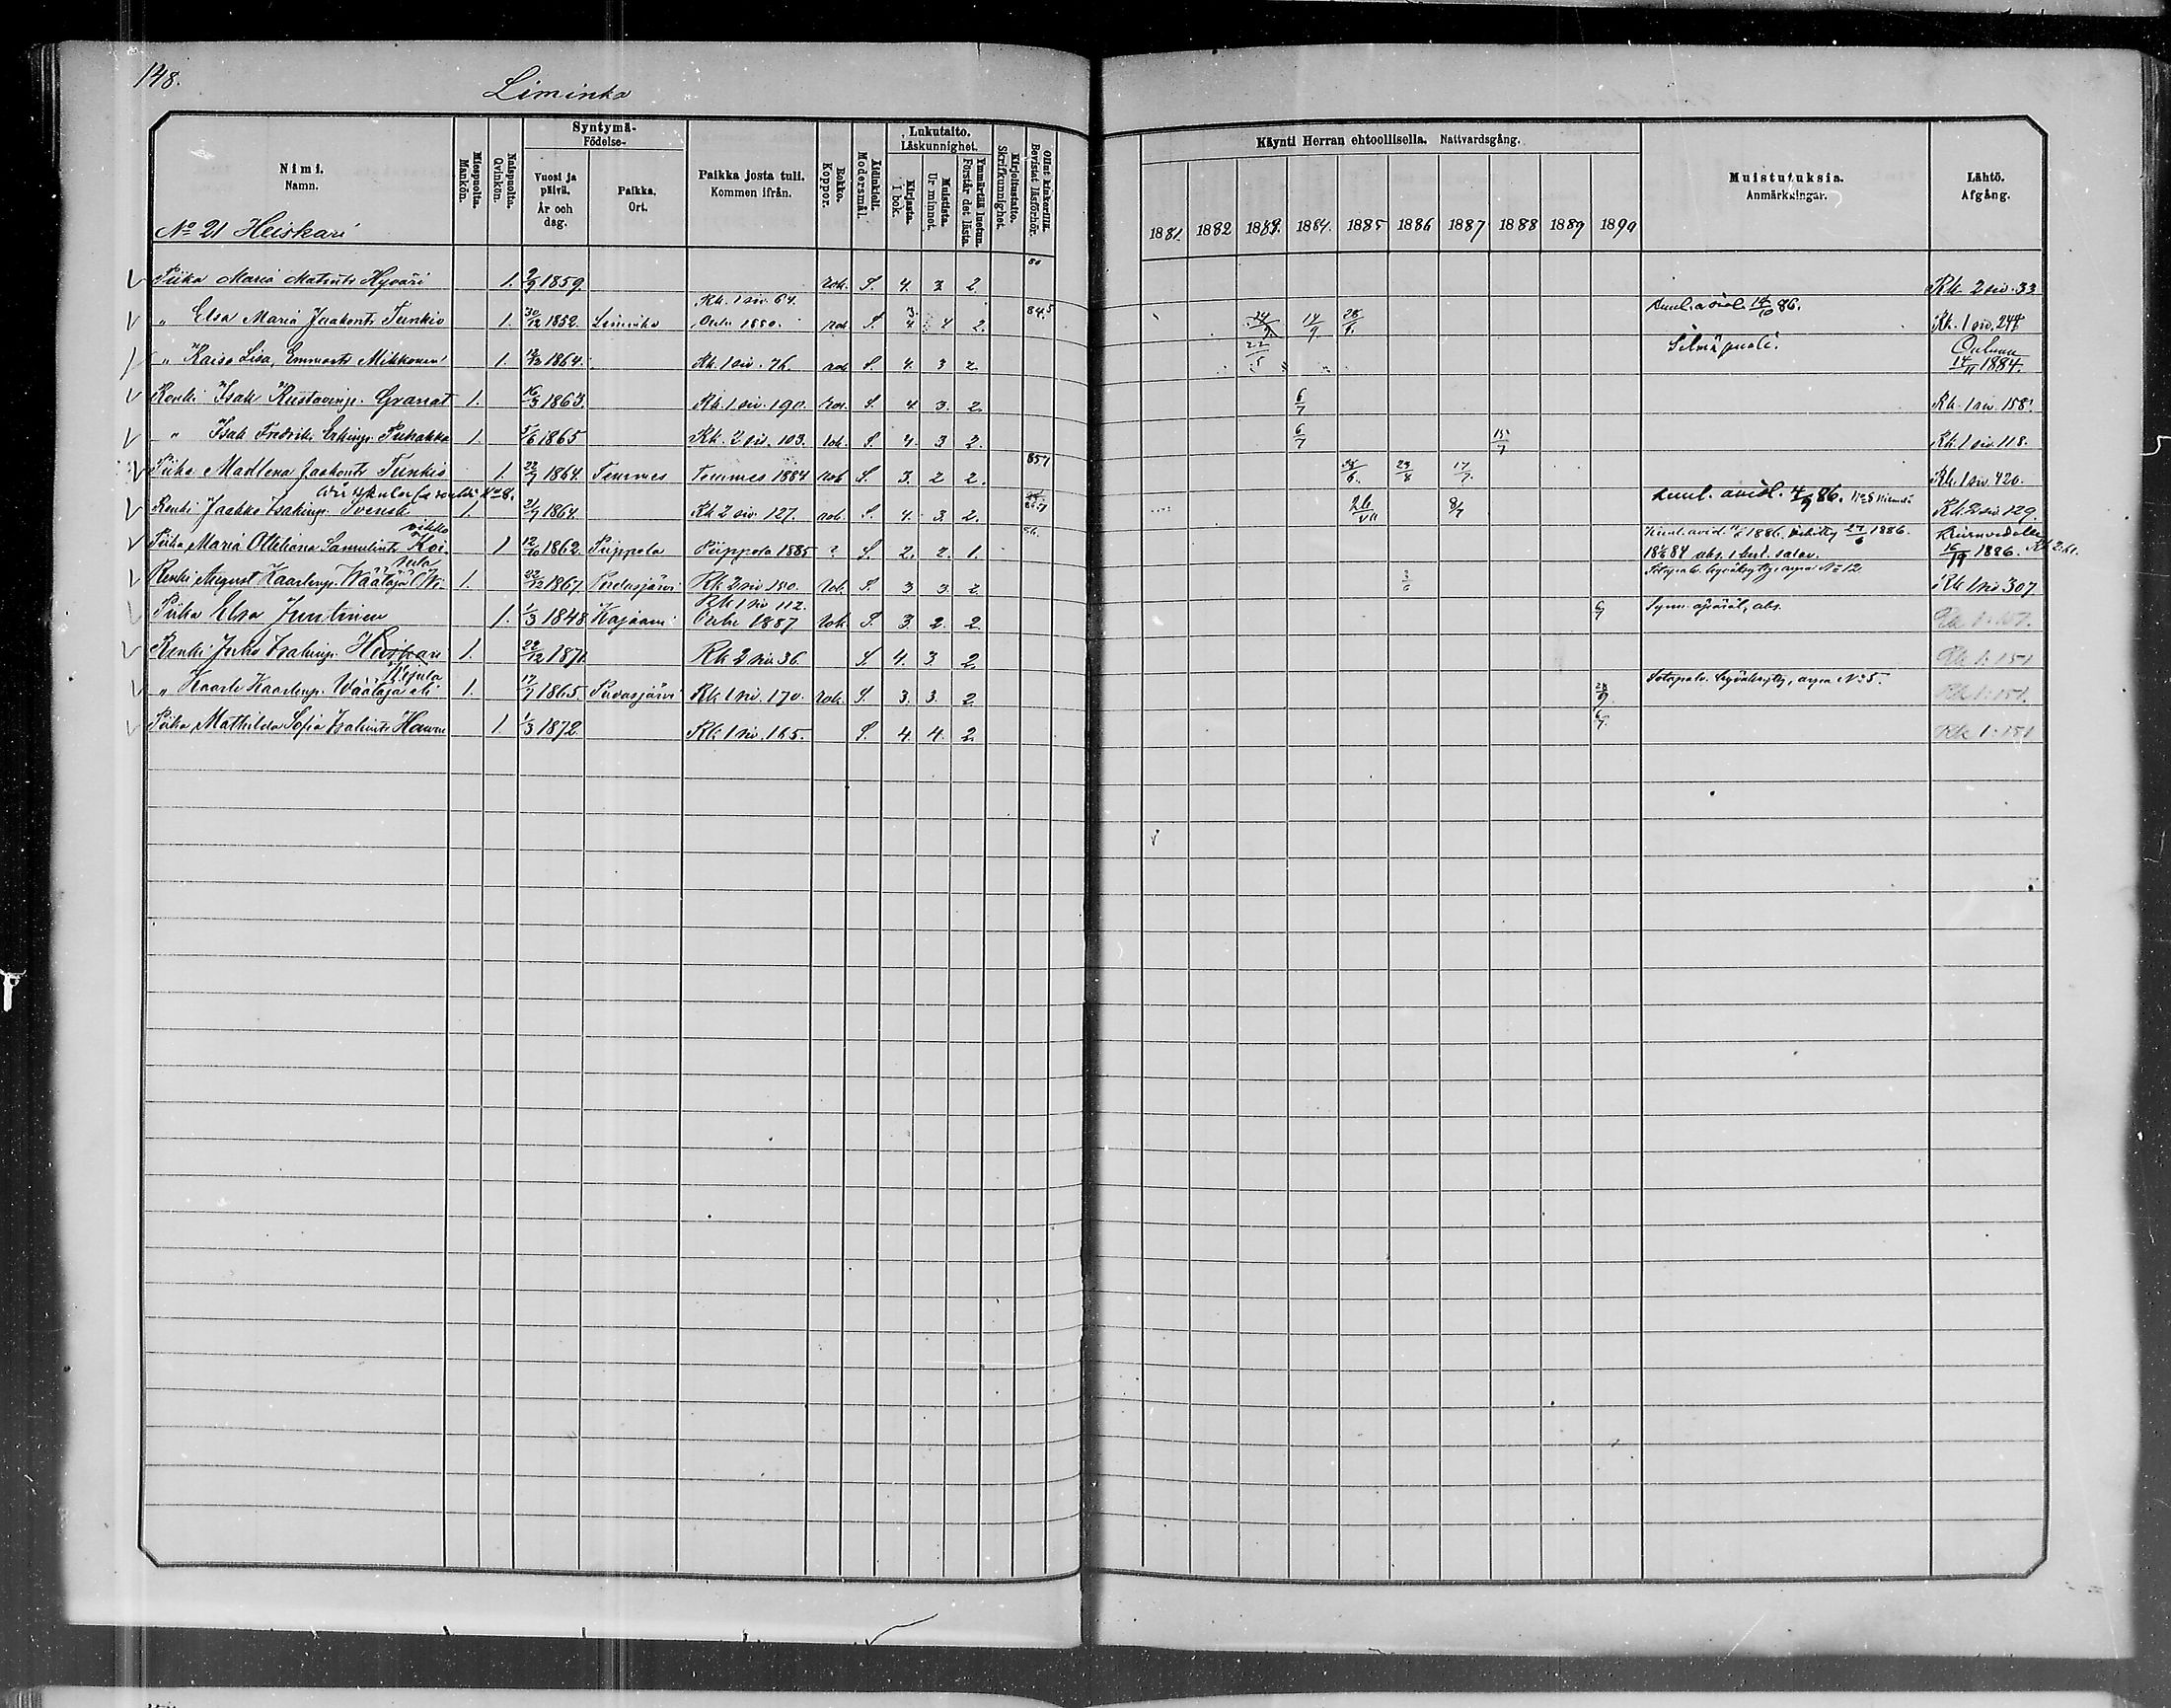 148.
Liminka
Nimi.
Namn.
Miespuolta.
Mankön.
Naispuolta.
Qvinkön.
Syntymä-
Födelse-
Vuosi ja
päivä.
År och
dag.
Paikka.
Ort.
Paikka josta tuli.
Kommen ifrån.
Rokko.
Koppor.
Äidinkieli.
Modersmål.
Lukutaito.
Läskunnighet.
Kirjasta.
I bok.
Muistista.
Ur minnet.
Ymmärtää luetun.
Förstår det lästa.
Kirjoitustaito.
Skrifkunnighet.
Ollut kinkerillä.
Bevistat läsförhör.
Käynti Herran ehtoollisella. Nattvardsgång.
1881. 1882 1883. 1884. 1885 1886 1887 1888 1889 1890
Muistutuksia.
Anmärkningar.
Lähtö.
Afgång.
No 21 Heiskari
Piika Maria Matintr Hyväri 1. 2/9 1859. rok. S. 4. 3. 2. 80 Rk. 2 siv. 33
Rk. 1 siv. 64.
" Elsa Maria Jaakontr Tunkio 1. 30/12 1852. Liminka Oulu 1880. rok S. 4 4 2. 84.5 24/9 14/9 28/6. Kuul. aviol. 14/10 86. Rk. 1 siv. 244
" Kaisa Lisa, Emmastr Mikkonen 1. 12/3 1864. Rk. 1 siv. 76. rok S. 4. 3 2. 22/5 Silmäpuoli. Ouluun
14/11 1884.
Renki Isak Kustavinp. Granat 1. 16/3 1863. Rk. 1 siv. 190. rok. S. 4 3. 2. 6/7 Rk. 1 siv. 158.
" Isak Fredrik Erkinp. Puhakka 1. 5/6 1865 Rk. 2 siv. 103. rok. S. 4. 3 2. 6/7 15/7 Rk. 1 siv 118.
Piika Madlena Jaakontr Tunkio 1. 22/7 1864. Temmes Temmes 1884 rok S. 3. 2 2. 85.1 28/6. 29/8 17/7. Rk. 1 siv. 420.
Renki Jaakko Isakinp. Svensk 1. 21/7 1864. Rk 2 siv. 127. rok. S. 4. 3. 2. 26/VII 8/7 Kuul. aviol. 4/9 86. Rk. 2 siv 129.
Piika Maria Ottiliana Samulintr Koivikko 1 12/10 1862. Piippola Piippola 1885 ? S. 2. 2. 1. Kuul. aviol. 1886. Vihitty 27/6 1886.
1886.
Renki August Kaarlenp. Väätäjä 1. 22/12 1867. Pudasjärvi Rk 2 siv 150. rok. S. 3 3. 2. 3/6 Sotapalv. hyväksytty, arpa No 12 Rk 1 siv 307
Rk 1 siv 112.
Piika Elsa Juntinen 1. 1/3 1848 Kajaani Oulu 1887 rok S. 3. 2. 2. 6/7 Synn. äpäräl., abs.
Renki Juho Isakinp. Heiskari 1. 22/12 1871. Rk 2 siv 36 S. 4. 3. 2. Rk 1:151
" Kaarle Kaarlenp. Väätäjä eli 1. 17/7 1865. Pudasjärvi Rk 1 siv. 170. rok. S. 3. 3. 2. 28/9 Sotapalv. hyväksytty, arpa No 5. Rk 1:151.
Piika Mathilda Sofia Isakintr Hannu 1. 1/3 1872. Rk 1 siv. 165. S. 4. 4. 2. 6/7. Rk 1:151